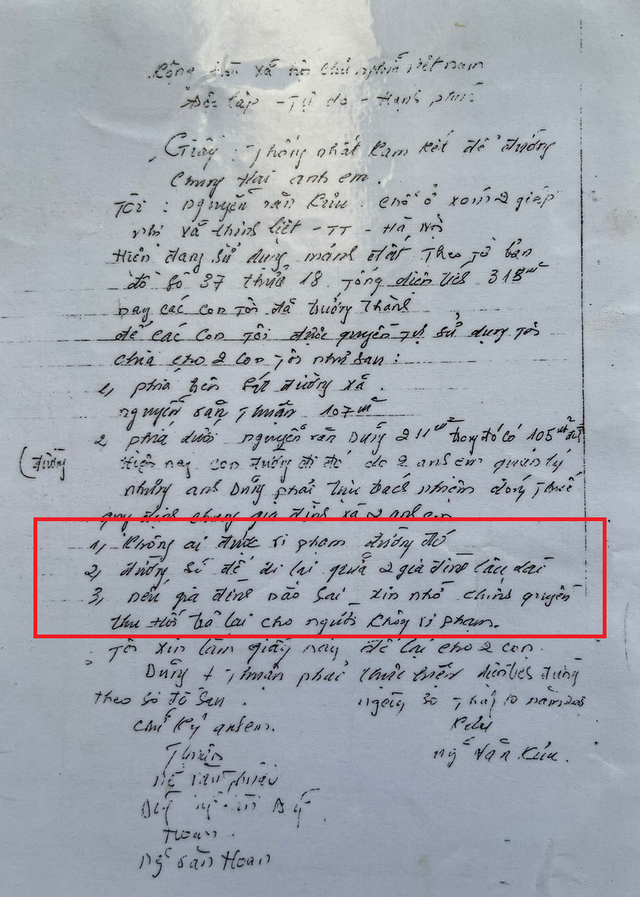 Cộng hòa xã hội chủ nghĩa việt nam
Độc lập - Tự do - Hạnh phúc
Giấy : Thống nhất kam kết để đường
Chung hai anh em.
Tôi : nguyễn văn Kửu. chỗ ở xóm 2 giáp
nhị xã thịnh liệt - TT - Hà Nội
Hiện đang sử dụng mảnh đất Theo Tờ bản
đồ số 37 thửa 18. Tổng diện tích 318m²
nay các con tôi đã trưởng thành
để các con Tôi được quyền tự sử dụng tôi
chia cho 2 con Tôi như sau :
1, phía trên sát đường xã.
nguyễn văn Thuận 107m²
2 phía dưới nguyễn văn Dũng 211m² trong đó có 105m² đất
(đường Hiện nay con đường đi đó do 2 anh em quản lý
nhưng anh Dũng phải chịu trách nhiệm đóng Thuế
quy định chung gia đình và 2 anh em
1, không ai được vi phạm đường đó
2, đường sử để đi lại giữa 2 gia đình lâu dài
3, nếu gia đình nào sai xin nhờ chính quyền
thu hồi trả lại cho người không vi phạm.
Tôi xin làm giấy này để lại cho 2 con.
Dũng + Thuận phải thực hiện diện tích đúng
theo sơ đồ sau. ngày 30 Tháng 10 năm
chữ ký anh em. Kửu
Thuận ng văn Kửu.
Hoan.
ng văn Hoan